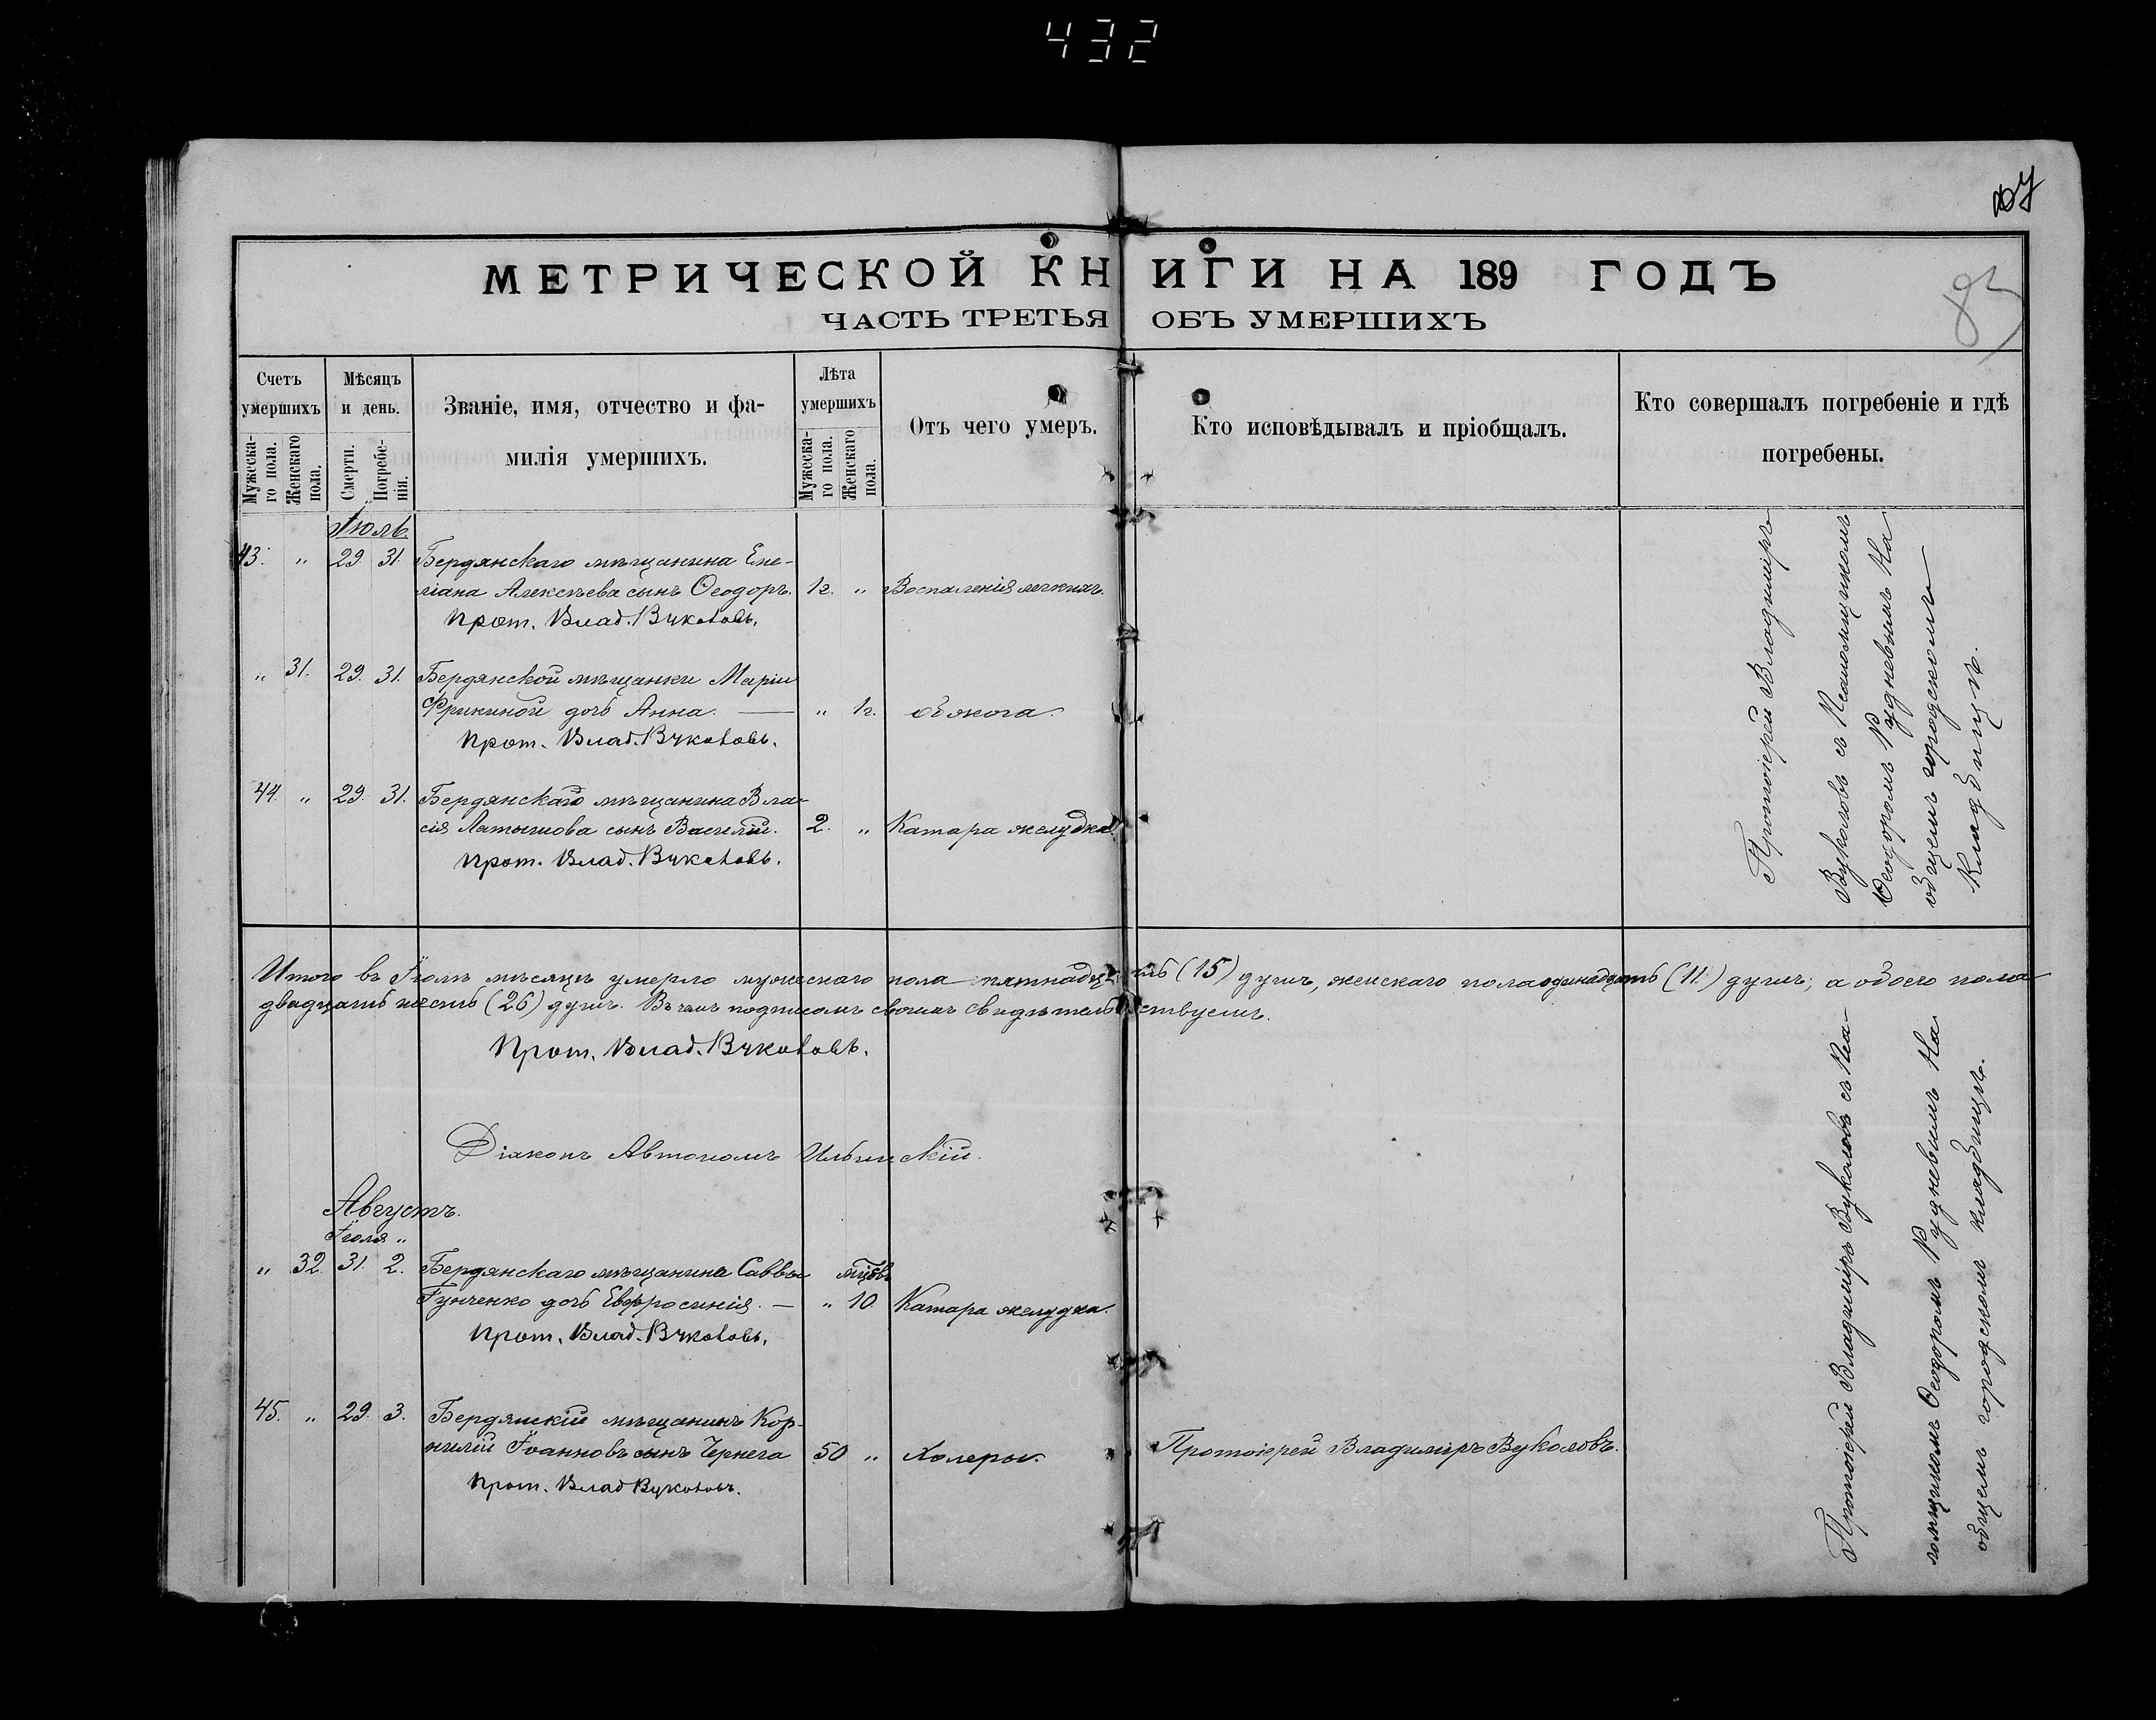 432
МЕТРИЧЕСКОЙ КНИГИ НА 189 ГОДЪ
ЧАСТЬ ТРЕТЬЯ ОБЪ УМЕРШИХЪ
Счетъ умершихъ
Мужеска-го пола.
Женскаго пола.
Мѣсяцъ и день.
Смерти.
Погребе-нія.
Званіе, имя, отчество и фа-
милія умершихъ.
Лѣта умершихъ
Мужеска-го пола.
Женскаго пола.
Отъ чего умеръ.
Кто исповѣдывалъ и пріобщалъ.
Кто совершалъ погребеніе и гдѣ
погребены.
Іюль.
43. „ 29 31. Бердянскаго мѣщанина Еме-
ліана Алексѣева сынъ Ѳеодоръ. 1г. „ Воспаленія легкихъ.
Прот. Влад. Вуколовъ.
„ 31. 29. 31. Бердянской мѣщанки Маріи
Фрикиной дочь Анна. — „ 1г. обжога.
Прот. Влад. Вуколовъ.
44. „ 29. 31. Бердянскаго мѣщанина Вла-
сія Латышова сынъ Василій. 2. „ Катара желудка.
Прот. Влад. Вуколовъ.
Протоіерей Владиміръ
Вуколовъ съ Псаломщикомъ
Ѳеодоромъ Рудневымъ На
общемъ городскомъ
Кладбищѣ.
Итого въ Іюлѣ мѣсяцѣ умерло мужескаго пола пятнадцать (15) душъ, женскаго пола одинадцать (11) душъ, а обоего пола
двадцать шесть (26) душъ. Въ чемъ подписомъ своимъ свидѣтельствуемъ.
Прот. Влад. Вуколовъ.
Діаконъ Автономъ Ильинскій.
Августъ.
Іюля „
„ 32. 31. 2. Бердянскаго мѣщанина Саввы мѣцвъ
Гунченко дочь Евфросинія. — „ 10. Катара желудка.
Прот. Влад. Вуколовъ.
45. „ 29. 3. Бердянскій мѣщанинъ Кор-
нилій Іоанновъ сынъ Чернега 50 „ Холеры. Протоіерей Владиміръ Вуколовъ.
Прот. Влад Вуколовъ.
Протоіерей Владиміръ Вуколовъ съ Пса-
ломщикомъ Ѳеодоромъ Рудневымъ На
общемъ городскомъ кладбищѣ.